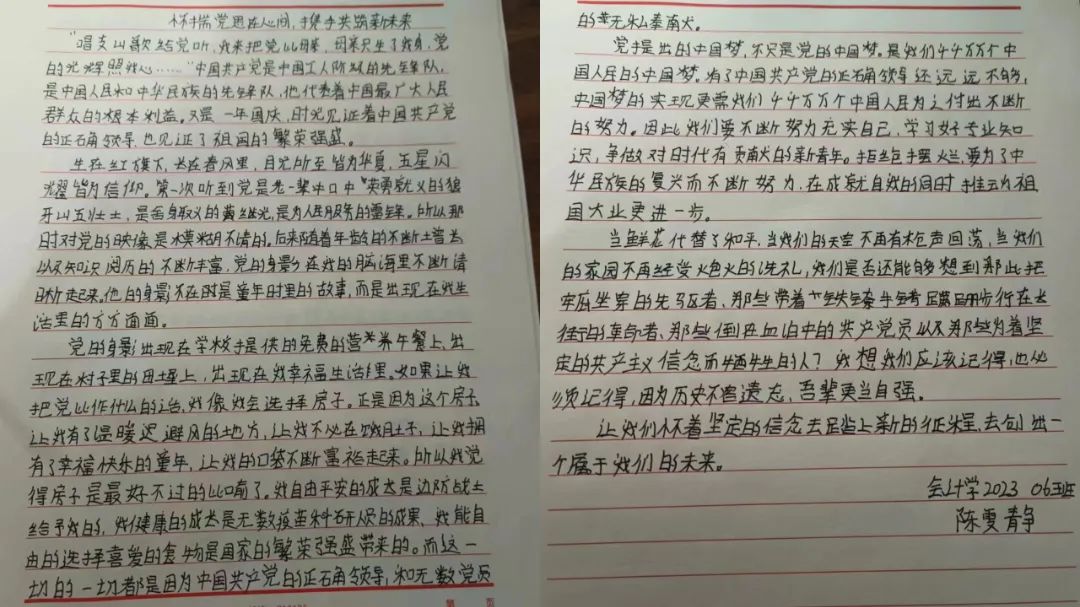 怀揣党恩在心间，携手共筑新未来
"唱支山歌给党听，我来把党比母亲，母亲只生了我身，党
的光辉照我心……"中国共产党是中国工人阶级的先锋队，
是中国人民和中华民族的先锋队，他代表着中国最广大人民
群众的根本利益。又是一年国庆，时光见证着中国共产党
的正确领导，也见证了祖国的繁荣强盛。
生在红旗下，长在春风里，目光所至皆为华夏，五星闪
耀皆为信仰。第一次听到党是老一辈口中"英勇就义的狼
牙山五壮士，是舍身取义的黄继光，是为人民服务的雷锋。所以那
时对党的映像是模糊不清的。后来随着年龄的不断增长
以及知识阅历的不断丰富，党的身影在我的脑海里不断清
晰起来。他的身影不在时是童年时里的故事，而是出现在我生
活里的方方面面。
党的身影出现在学校提供的免费的营养午餐上、出
现在村子里的田埂上，出现在我幸福生活里。如果让我
把党比作什么的话，我像我会选择房子。正是因为这个房子，
让我有了温暖避风的地方，让我不必在饿肚子，让我拥
有了幸福快乐的童年，让我的口袋不断富裕起来。所以我觉
得房子是最好不过的比喻了。我自由平安的成长是边防战士
给予我的，我健康的成长是无数疫苗科研人员的成果、我能自
由的选择喜爱的食物是国家的繁荣强盛带来的。而这一
切的一切都是因为中国共产党的正确领导，和无数党员
的无私奉献。
党提出的中国梦，不只是党的中国梦。是我们44万万个中
国人民的中国梦。有了中国共产党的正确领导还远远不够，
中国梦的实现更需我们44万万个中国人民为之付出不断
的努力。因此我们要不断努力充实自己，学习好专业知
识，争做对时代有贡献的新青年。拒绝摆烂，要为了中
华民族的复兴而不断努力，在成就自我的同时推动祖
国大业更进一步。
当鲜花代替了和平，当我们的天空不再有枪声回荡，当我们
的家园不再经受炮火的洗礼，我们是否还能够想到那些把
牢底坐穿的先驱者、那些带着铁镣牵绊蹒跚步行在长
街的革命者、那些倒在血泊中的共产党员以及那些为着坚
定的共产主义信念而牺牲的人？我想我们应该记得，也必
须记得，因为历史不容遗忘，吾辈更当自强。
让我们怀着坚定的信念去踏上新的征程，去创出一
个属于我们的未来。
会计学2023 06班
陈雯静